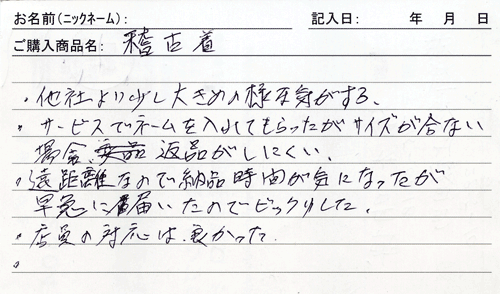 お名前(ニックネーム): 記入日: 年 月 日
ご購入商品名: 稽古着
・他社より少し大きめの様な気がする、
・サービスでネームを入れてもらったがサイズが合ない
場合、返品がしにくい。
・遠距離なので納品時間が気になったが
早急に届いたのでビックリした。
・店員の対応は、良かった
。